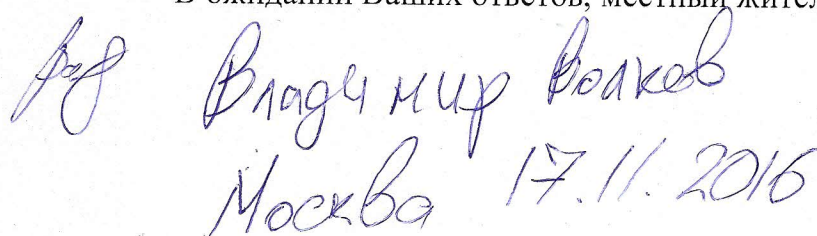 В ожидании Ваших ответов, местный жител
Владимир Волков
Москва 17.11.2016